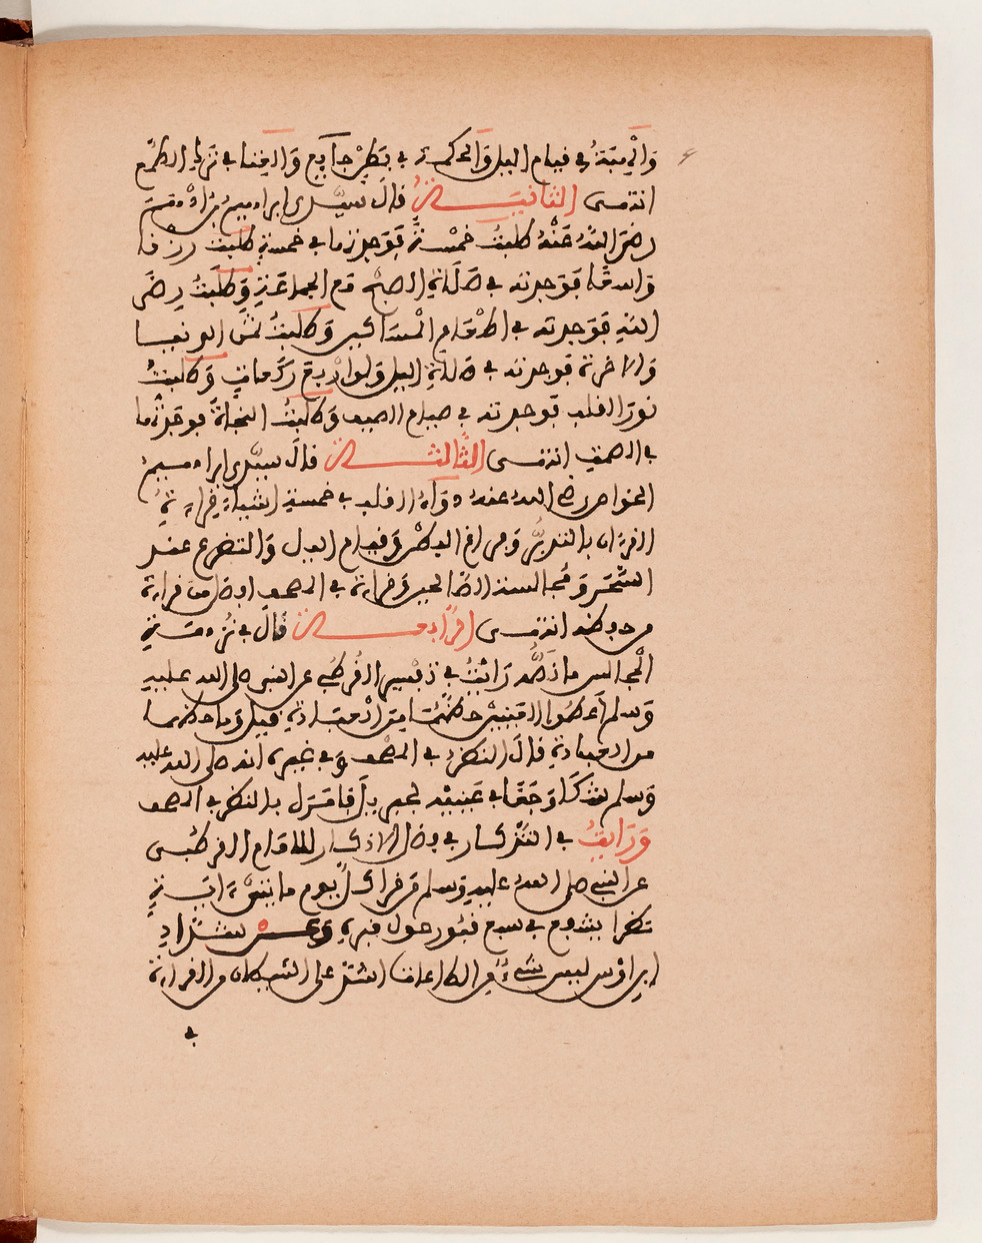 وَالْهِيبَةُ في قيام اليل وَالحكمة في بَطْنٍ جايِعٍ وَالغِنا في ترك الطمَع
انتهى الثانيَــة قالَ سيِّدي ابراهيمُ بنُ ادْهَمَ
رضيَ اللهُ عَنْهُ طلبتُ خمْسةً فَوَجدتها في خمسةٍ طلبت رزقا
وَاسعًا فوَجدته في صَلَاةِ الصبْح مَع الجماعَةِ وَطلبتُ رِضَى
اللهِ فوَجدته في اطْعَامِ الْمسَاكين وَطلبتُ
وَالاخرة فوجدته في صَلَاةِ اليل وَلو ارْبع رَكَعاتٍ وَطلبتُ
نورَ القلب فوَجدته في صيام الصيف وَطلبتُ النجاةَ فوجَدْتها
في الصمْتِ انتهى الثَّالثــة قالَ سيِّدي ابراهيمُ
الخواص رضي اللهُ عنهُ دوَآءُ القلب في خمسةِ اشياءَ قِراءةُ
القرءان بالتدبُّرِ وَفراغ البطْن وَقيام اليل وَالتضرع عند
السَّحَر وَمُجالسة الصَّالحين وَقراءة في المصحف افضَل مِنَ قراءة
من حفظه انتهى الرَّابعــة قَالَ في نُزهَةِ
الْمجالس ما نَصُّه رَايْتُ في تفسير القُرطُبي عن النبي صلى الله عليه
وَسلم أَعطُوا العَينيْن حَظَّهُمَا مِنَ الْعبَادة قيل وَما حظهما
من العبادة قالَ النظرُ في المصْحف وَفي غيره انه صلى الله عليه
وَسلم شكَا وَجَعًا في عَينيْه لجبريلَ فامَرَهُ بالنظر في المصحف
وَرَايتُ في التَّذكار في فضل الاذكار للامَام القرطُبى
عن النبي صلى اللهُ عليه وَسلم مَن قرا كلَّ يوم مايتيْ ءايَةٍ
نظرا يشفع في سبع قبُور حول قبره وَعــن شدَّادِ
ابن اوْس ليس شيءٌ من الطاعات اشدّ على الشيطان من القراءة
في